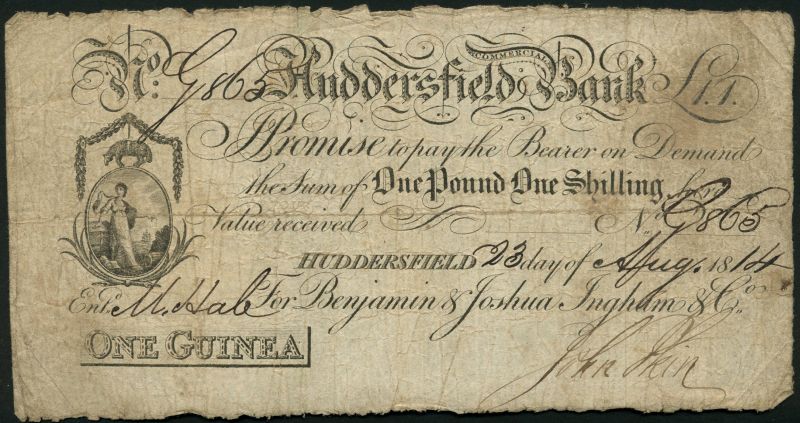 No: G865 Huddersfield COMMERCIAL Bank £1.1.
I Promise to pay the Bearer on Demand
the Sum of One Pound One Shilling, for
Value received No G865
HUDDERSFIELD 23 day of Aug. 1814
Entd. M. Hale For Benjamin & Joshua Ingham & Co.
ONE GUINEA
John